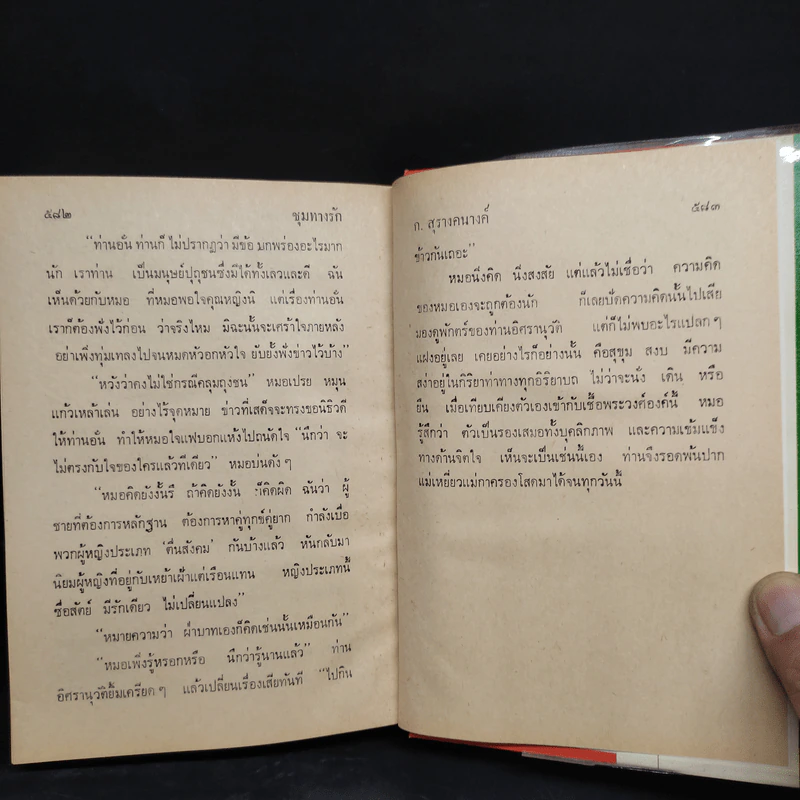 ๕๘๒ ชุมทางรัก
“ท่านอั๋น ท่านก็ ไม่ปรากฏว่า มีข้อ บกพร่องอะไรมาก
นัก เราท่าน เป็นมนุษย์ปุถุชนซึ่งมีได้ทั้งเลวและดี ฉัน
เห็นด้วยกับหมอ ที่หมอพอใจคุณหญิงนิ แต่เรื่องท่านอั๋น
เราก็ต้องฟังไว้ก่อน ว่าจริงไหม มิฉะนั้นจะเศร้าใจภายหลัง
อย่าเพิ่งทุ่มเทลงไปจนหมดหัวอกหัวใจ ยับยั้งฟังข่าวไว้บ้าง”
“หวังว่าคงไม่ใช่กรณีคลุมถุงชน” หมอเปรย หมุน
แก้วเหล้าเล่น อย่างไร้จุดหมาย ข่าวที่เสด็จจะทรงขอนิธิวดี
ให้ท่านอั๋น ทำให้หมอใจแฟบอกแห้งไปถนัดใจ “นึกว่า จะ
ไม่ตรงกับใจของใครแล้วทีเดียว” หมอบ่นดังๆ
“หมอคิดยังงั้นรึ ถ้าคิดยังงั้น ก็คิดผิด ฉันว่า ผู้
ชายที่ต้องการหลักฐาน ต้องการหาคู่ทุกข์คู่ยาก กำลังเบื่อ
พวกผู้หญิงประเภท ‘ตื่นสังคม’ กันบ้างแล้ว หันกลับมา
นิยมผู้หญิงที่อยู่กับเหย้าเฝ้าแต่เรือนแทน หญิงประเภทนี้
ซื่อสัตย์ มีรักเดียว ไม่เปลี่ยนแปลง”
“หมายความว่า ฝ่าบาทเองก็คิดเช่นนั้นเหมือนกัน”
“หมอเพิ่งรู้หรอกหรือ นึกว่ารู้นานแล้ว” ท่าน
อิศรานุวัติยิ้มเครียดๆ แล้วเปลี่ยนเรื่องเสียทันที “ไปกิน
ก. สุรางคนางค์ ๕๘๓
ข้าวกันเถอะ”
หมอนิ่งคิด นึงสงสัย แต่แล้วไม่เชื่อว่า ความคิด
ของหมอเองจะถูกต้องนัก ก็เลยปัดความคิดนั้นไปเสีย
มองดูพักตร์ของท่านอิศรานุวัติ แต่ก็ไม่พบอะไรแปลกๆ
แฝงอยู่เลย เคยอย่างไรก็อย่างนั้น คือสุขุม สงบ มีความ
สง่าอยู่ในกิริยาท่าทางทุกอิริยาบถ ไม่ว่าจะนั่ง เดิน หรือ
ยืน เมื่อเทียบเคียงตัวเองเข้ากับเชื้อพระวงศ์องค์นี้ หมอ
รู้สึกว่า ตัวเป็นรองเสมอทั้งบุคลิกภาพ และความเข้มแข็ง
ทางด้านจิตใจ เห็นจะเป็นเช่นนี้เอง ท่านจึงรอดพ้นปาก
แม่เหยี่ยวแม่กาครองโสดมาได้จนทุกวันนี้